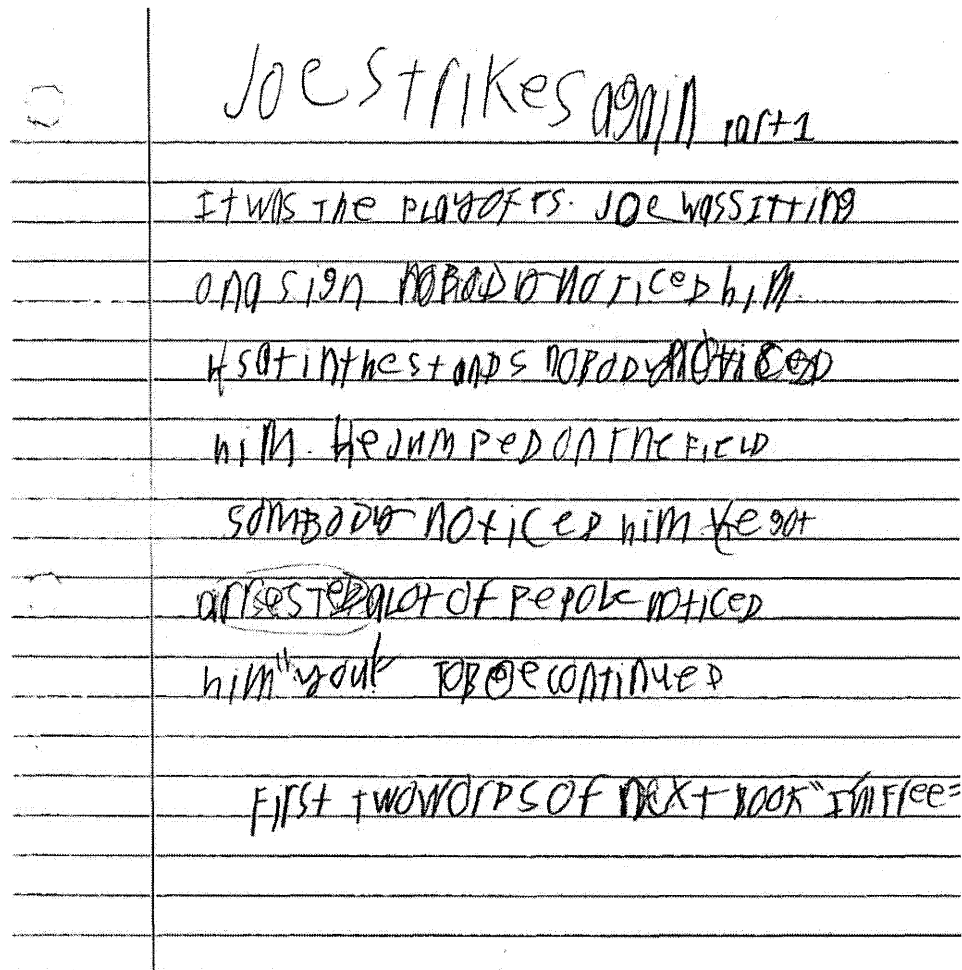 Joe Strikes again part 1
It was The playoffs. Joe was sitting
on a sign noBoDy noticeD him.
H sat in the stanDs noBoDy noticeD
him. He jumpeD on The FielD
somBoDy noticeD him He got
arresTeD a lot of pepole noticeD
him "you!" To Be continueD
First two worDs of next Book "Im Free"